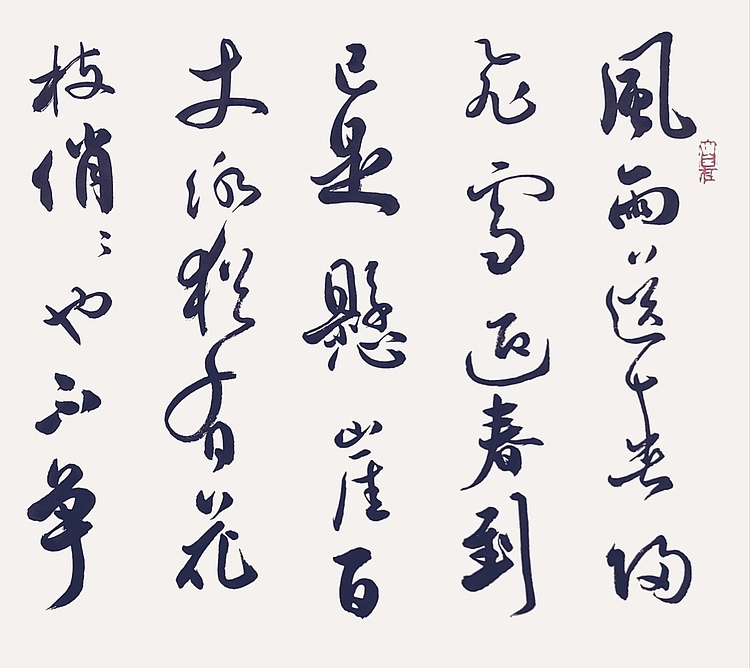 風雨送春歸
飛雪迎春到
已是懸崖百
丈冰猶有花
枝俏々也不爭